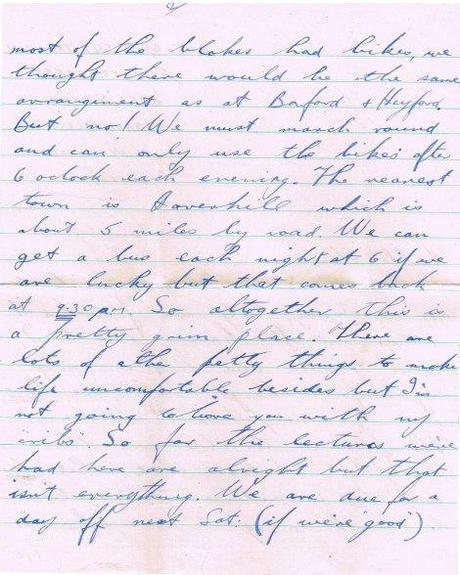 2/
most of the blokes had bikes, we
thought there would be the same
arrangement as at Barford & Heyford.
But no! We must march round
and can only use the bikes after
6 oclock each evening. The nearest
town is Haverhill which is
about 5 miles by road. We can
get a bus each night at 6 if we
are lucky but that comes back
at 9.30 pm. So altogether this is
a pretty grim place. There are
lots of other petty things to make
life uncomfortable besides but I'm
not going to bore you with my
'cribs'. So far the lectures we've
had here are alright but that
isn't everything. We are due for a
day off next Sat: (if we're 'good')